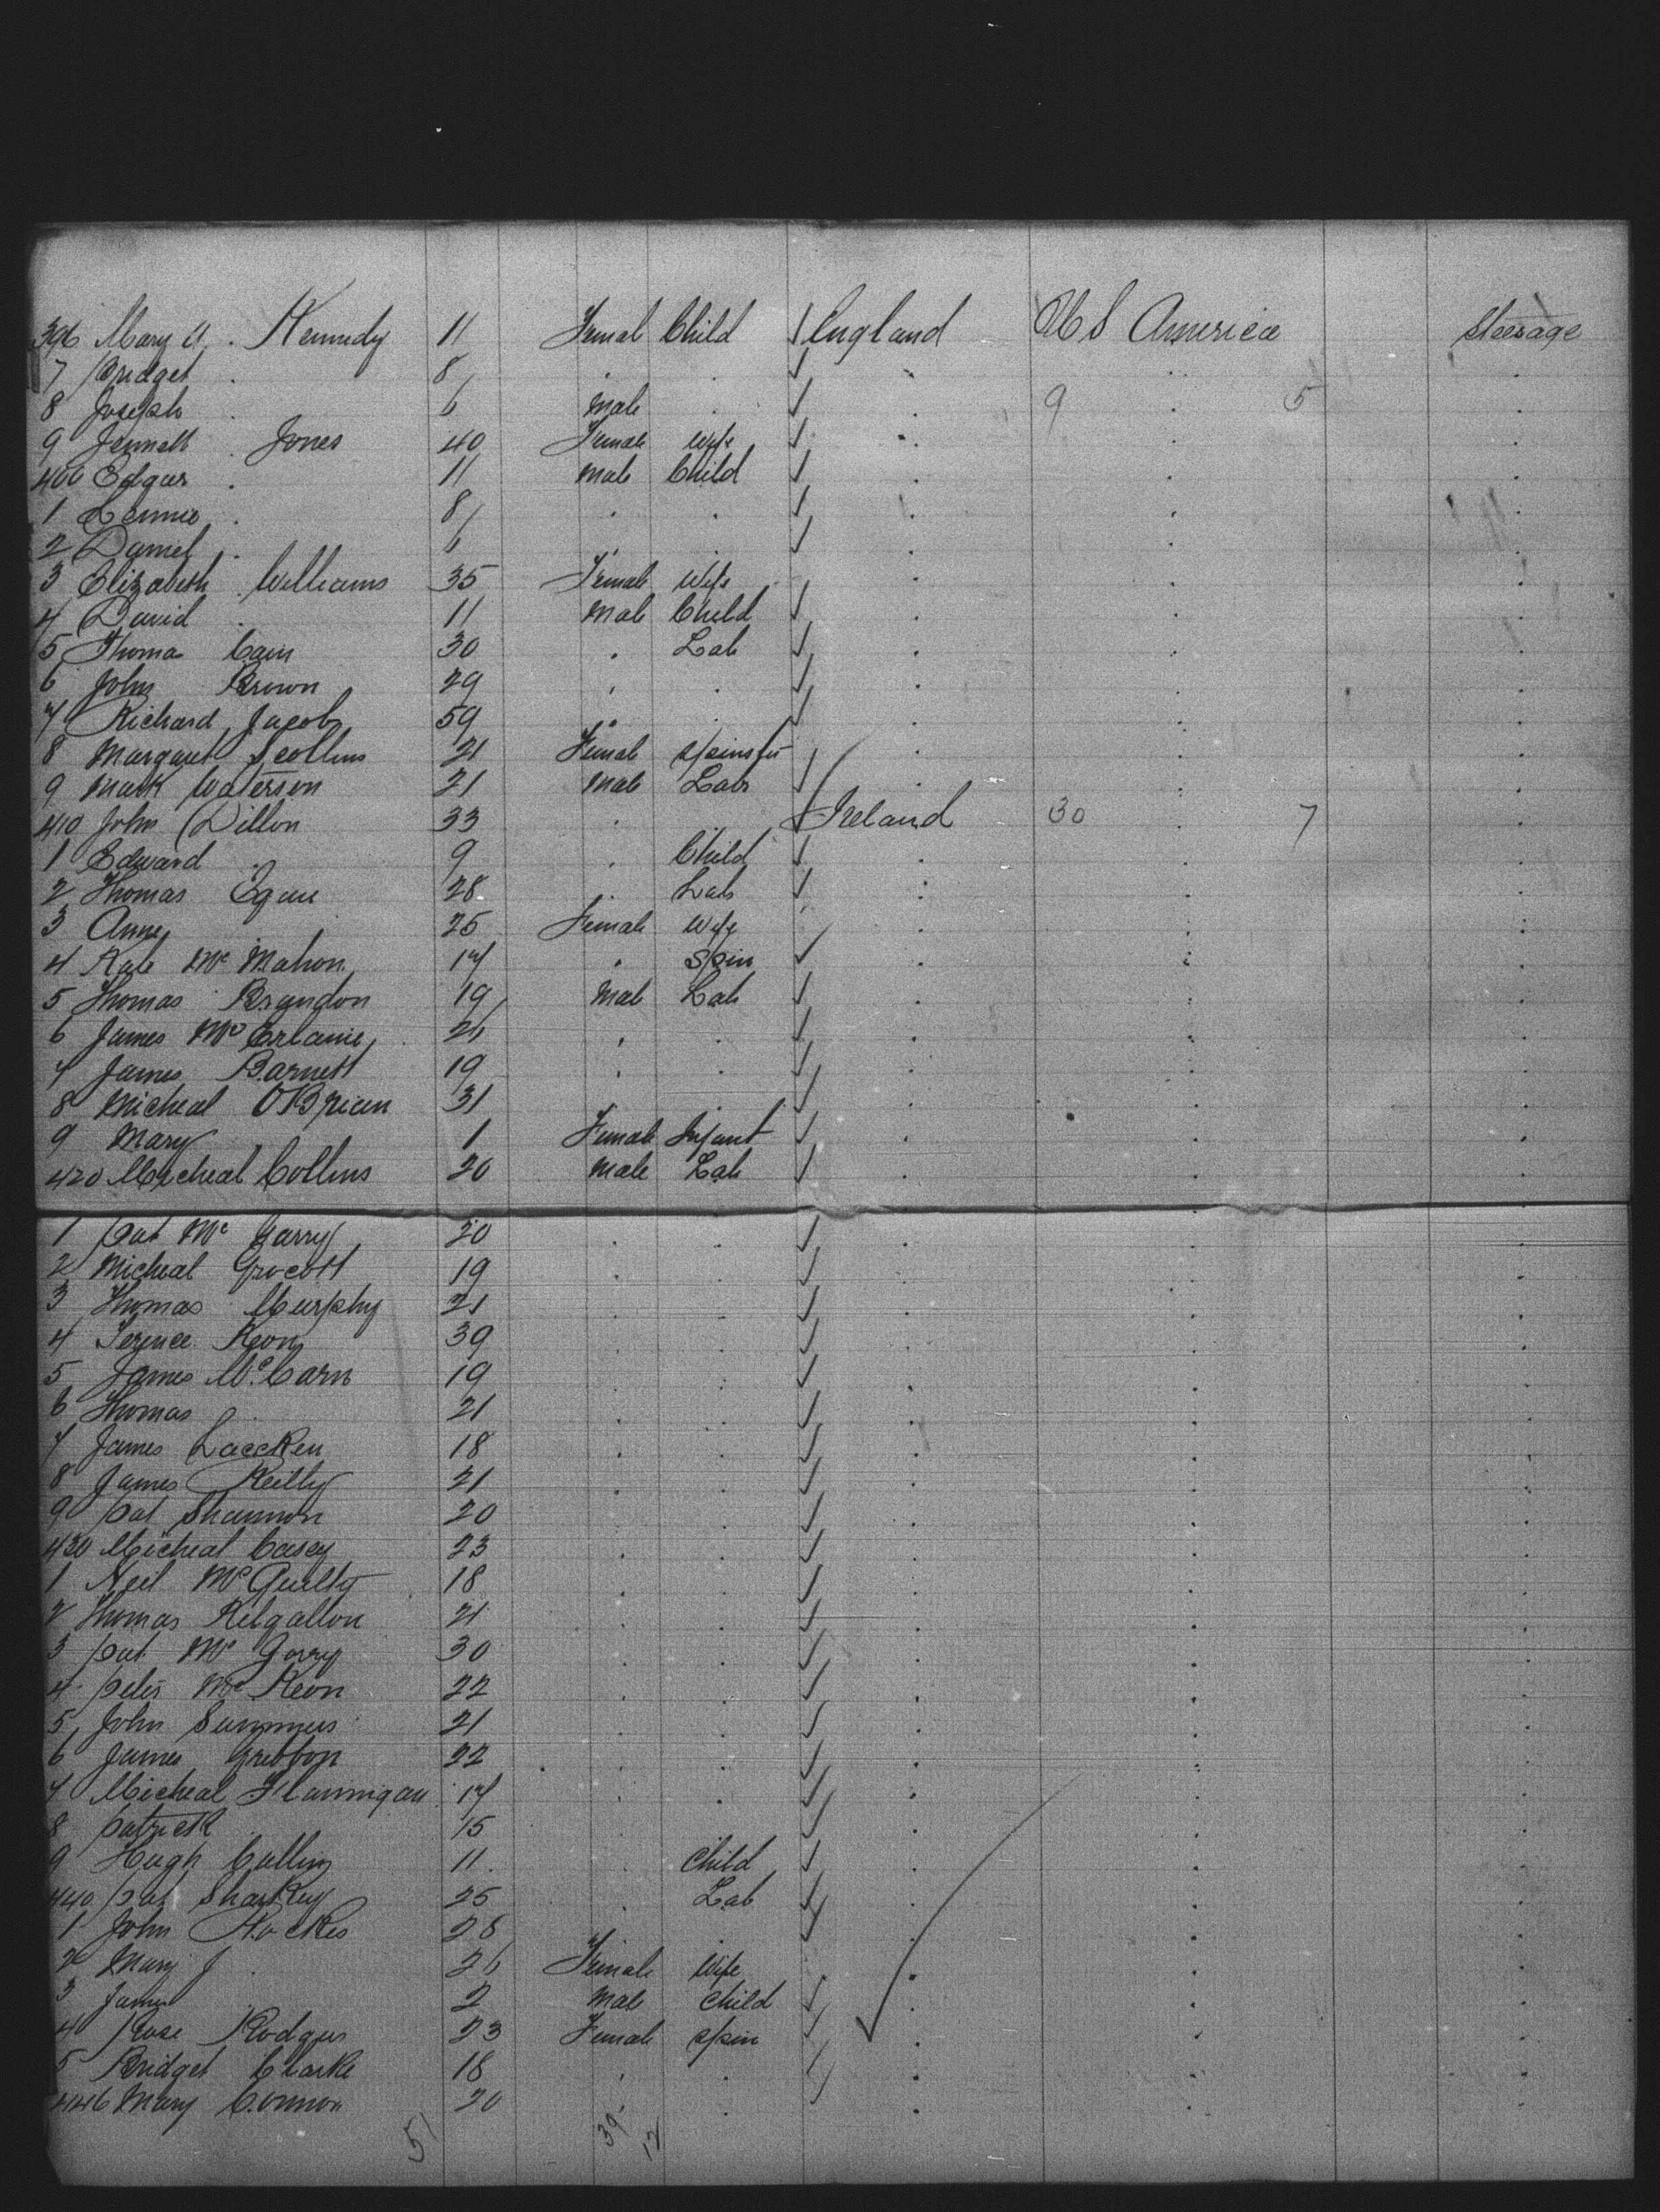 396 Mary A. . Kennedy 11 Femal Child √ England U S America Steerage
7 Bridget . 8 . . √ . . .
8 Joseph . 6 Male . √ . 9 . 5 .
9 Jennett . Jones 40 Female Wife √ . . .
400 Edgar . 11 Male Child √ . . .
1 . 8 . . √ . . .
2 Daniel . 6 . . √ . . .
3 Elizabeth Williams 35 Female Wife . . .
4 David . 11 Male Child √ . . .
5 Thomas Cain 30 . Lab √ . . .
6 John Brown 29 . . √ . . .
7 Richard Jacobs 59 . . √ . . .
8 Margaret Scollins 21 Female Spinster √ . . .
9 Mark Waterson 21 Male Labr √ . . .
410 John Dillon 33 . . √ Ireland 30 . 7 .
1 Edward . 9 . Child √ . . .
2 Thomas Egan 28 . Lab √ . . .
3 Anne . 25 Female Wife . . .
4 Kate Mc Mahon 17 . Spin √ . . .
5 Thomas Bryndon 19 Male Lab √ . . .
6 James Mc . . √ . . .
7 James Barnett 19 . . √ . . .
8 Micheal O'Brien 31 . . √ . . .
9 Mary . 1 Female Infant √ . . .
420 Micheal Collins 20 Male Lab √ . . .
1 Pat Mc Garry 20 . . √ . . .
2 Micheal Grocott 19 . . √ . . .
3 Thomas Murphy 21 . . √ . . .
4 Terence Keon 39 . . √ . . .
5 James Mc Carn 19 . . √ . . .
6 Thomas . 21 . . √ . . .
7 James Laecken 18 . . √ . . .
8 James Reilly 21 . . √ . . .
9 Pat Shannon 20 . . √ . . .
430 Micheal Casey 23 . . √ . . .
1 Neil Mc Guilty 18 . . √ . . .
2 Thomas Kilgallon 21 . . √ . . .
3 Pat Mc Garry 30 . . √ . . .
4 Peter Mc Keon 22 . . √ . . .
5 John Summers 21 . . √ . . .
6 James Gribbon 22 . . √ . . .
7 Micheal Flannigan 17 . . √ . . .
8 Patrick . 15 . √ . . .
9 Hugh Cullen 11 . Child √ . . .
440 Pat Sharkey 25 . Lab √ . . .
1 John 28 . √ . . .
2 Mary J . 26 Female Wife . . .
3 James . 2 Male Child √ . . .
4 Rose Rodgers 23 Female Spin √ . . .
5 Bridget Clarke 18 . . √ . . .
446 Mary Connon 20 . √ . . .
51 39 12